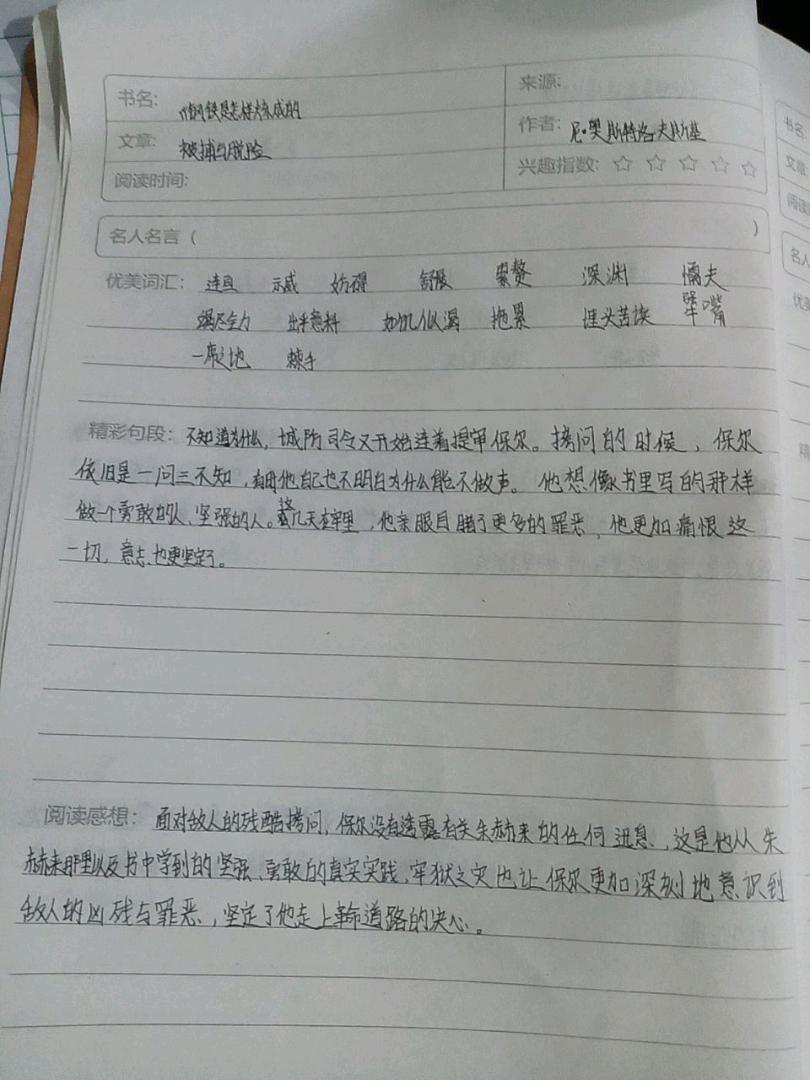 书名: 《钢铁是怎样炼成的
来源:
文章: 被捕与脱险
作者: 尼·奥斯特洛夫斯基
阅读时间:
兴趣指数: ☆ ☆ ☆ ☆ ☆
名人名言 ( )
优美词汇: 示威 妨碍 舒服 累赘 深渊 懦夫
竭尽全力 出乎意料 如饥似渴 拖累 埋头苦读 犟嘴
一席之地 棘手
精彩句段: 不知道为什么,城防司令又开始连着提审保尔。拷问的时候,保尔
依旧是一问三不知,他自己也不明白为什么能不做声。他想像书里写的那样
做一个勇敢的人、坚强的人。这几天在牢里,他亲眼目睹了更多的罪恶,他更加痛恨这
一切,意志也更坚定了。
阅读感想: 面对敌人的残酷拷问,保尔没有透露有关朱赫来的任何讯息,这是他从朱
赫来那里以及书中学到的坚强、勇敢的真实实践,牢狱之灾也让保尔更加深刻地意识到
敌人的凶残与罪恶,坚定了他走上革命道路的决心。